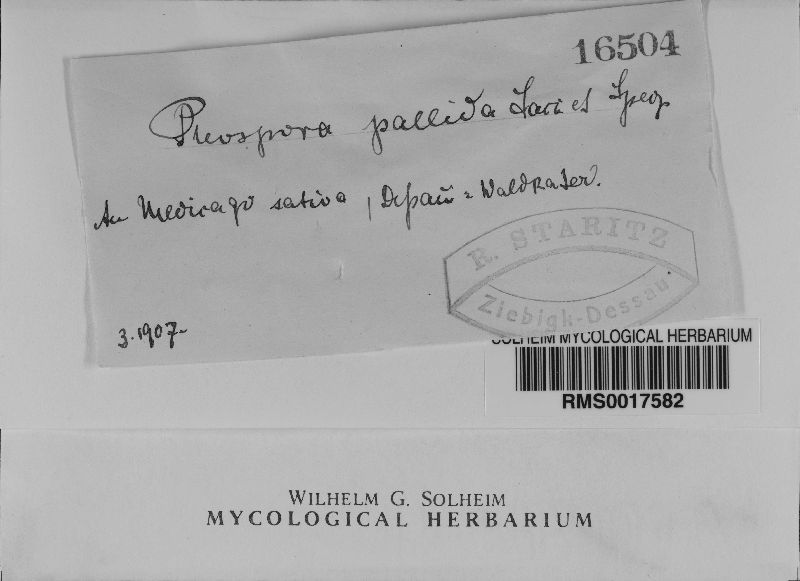 16504
Pleospora pallida Sacc et Speg
An Medicago sativa, Dessau = Waldkater.
R. STARITZ
Ziebigk-Dessau
3.1907
SOLHEIM MYCOLOGICAL HERBARIUM
RMS0017582
WILHELM G. SOLHEIM
MYCOLOGICAL HERBARIUM